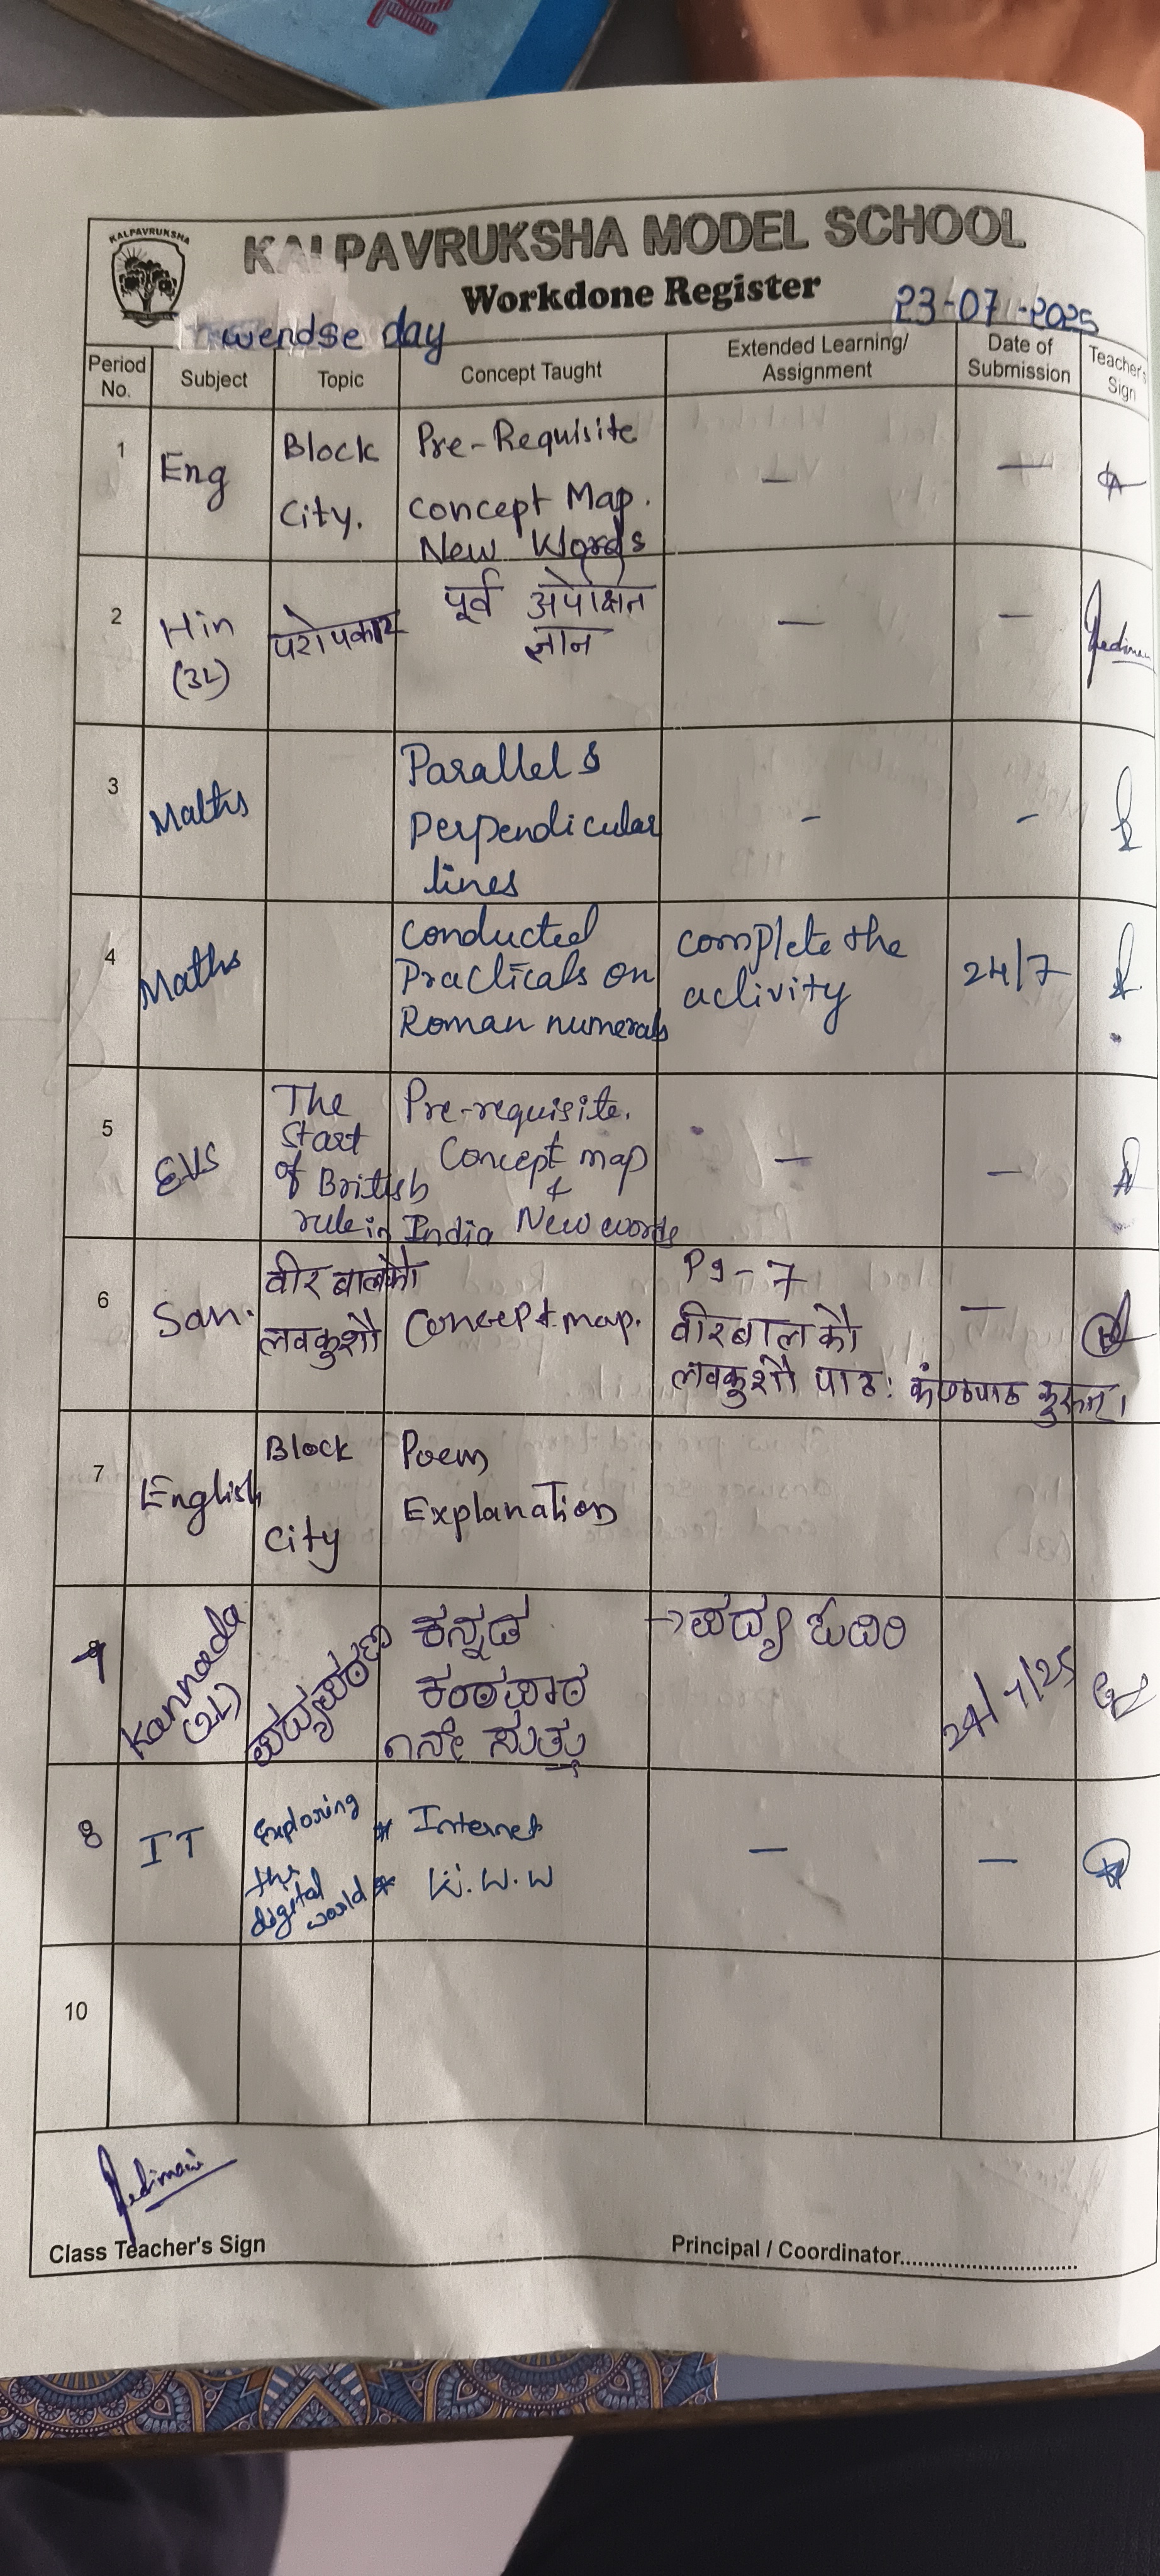 KALPAVRUKSHA
KALPAVRUKSHA MODEL SCHOOL
Workdone Register
wendse day 23-07-2025
Period No. Subject Topic Concept Taught Extended Learning/ Assignment Date of Submission Teacher's Sign
1 Eng Block City. Pre-Requisite
Concept Map.
New Words — —
2 Hin (3L) परोपकार पूर्व अपेक्षित
ज्ञान — —
3 Maths Parallel &
Perpendicular
lines - -
4 Maths Conducted
Practicals on
Roman numerals complete the
activity 24/7
5 EVS The
Start
of British
rule in India Pre-requisite.
Concept map
&
New words — —
6 San. वीर बालकौ
लवकुशौ Concept map. Pg-7
वीरबालकौ
लवकुशौ पाठ: कंण्ठपाठ कुरुत। —
7 English Block
City Poem
Explanation
9 Kannada (2L) ಪದ್ಯಪಠಣ ಕನ್ನಡ
ಕಂಠಪಾಠ
೧ನೇ ಸುತ್ತು →ಪದ್ಯ ಓದಿರಿ 24/7/25
8 IT Exploring
the
digital
world * Internet
* W.W.W — —
10
Class Teacher's Sign Principal / Coordinator